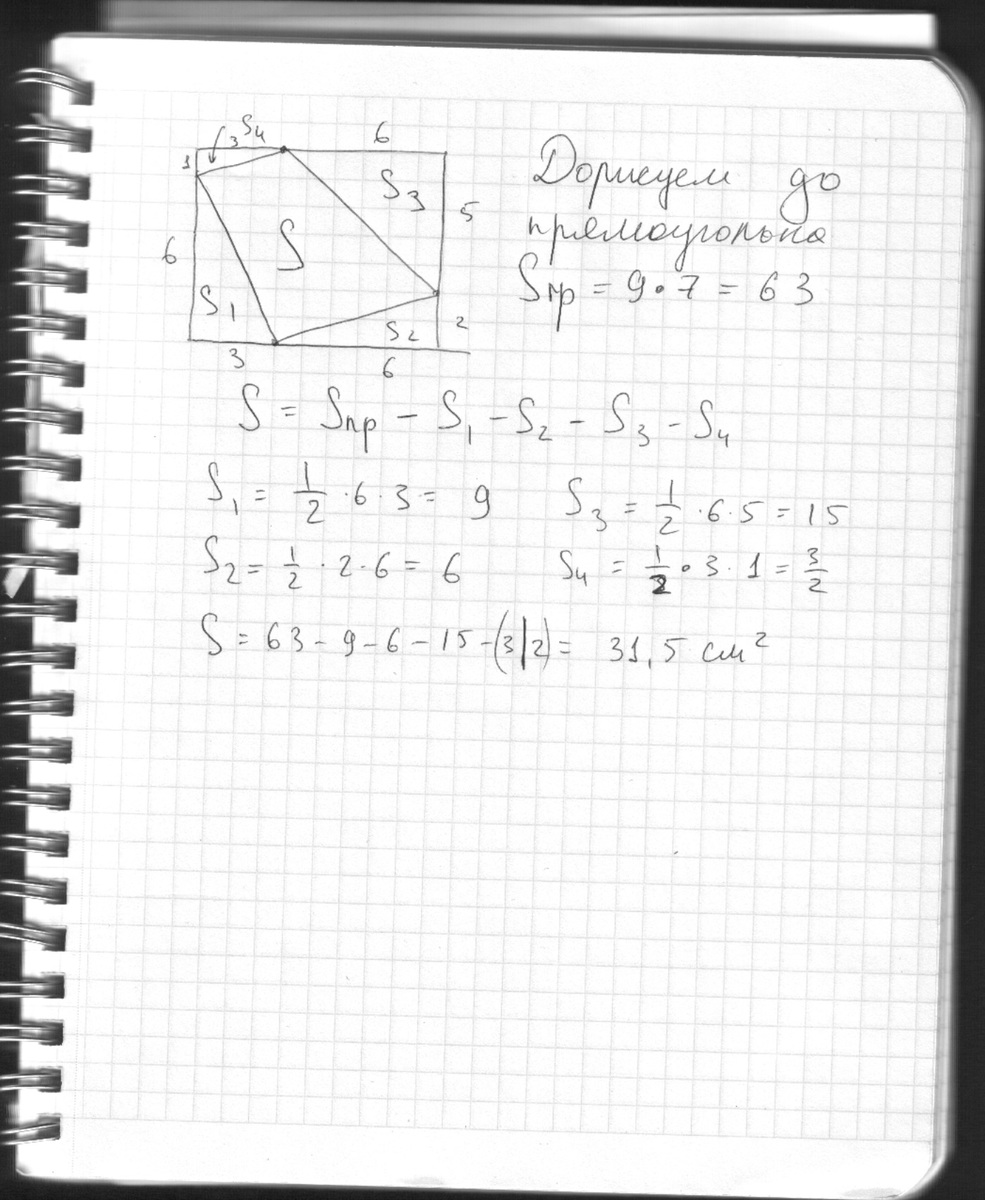 3 S₄ 6
1
S₃
5
6
S
S₁
S₂
2
3
6
Дорисуем до
прямоугольника
Sпр = 9 · 7 = 63
S = Sпр − S₁ − S₂ − S₃ − S₄
S₁ = 1/2 · 6 · 3 = 9 S₃ = 1/2 · 6 · 5 = 15
S₂ = 1/2 · 2 · 6 = 6 S₄ = 1/2 · 3 · 1 = 3/2
S = 63 − 9 − 6 − 15 − (3|2) = 31,5 см²